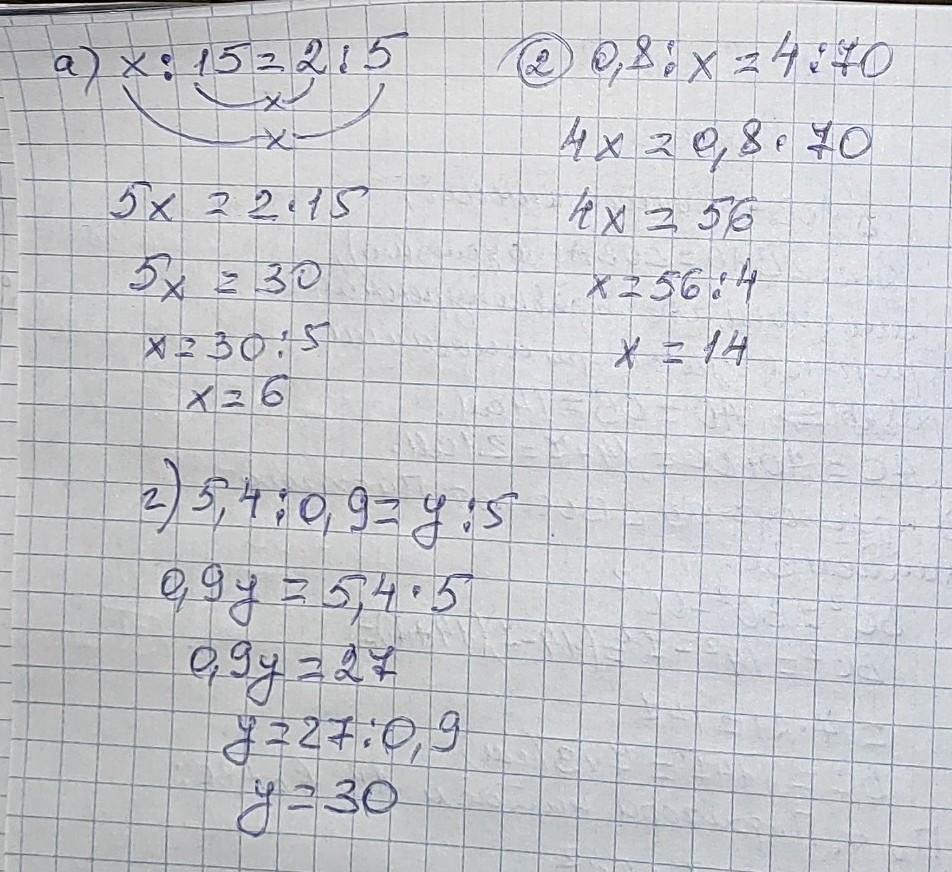 а) x : 15 = 2 : 5
x
x
5x = 2 · 15
5x = 30
x = 30 : 5
x = 6
② 0,8 : x = 4 : 70
4x = 0,8 · 70
4x = 56
x = 56 : 4
x = 14
г) 5,4 : 0,9 = y : 5
0,9y = 5,4 · 5
0,9y = 27
y = 27 : 0,9
y = 30